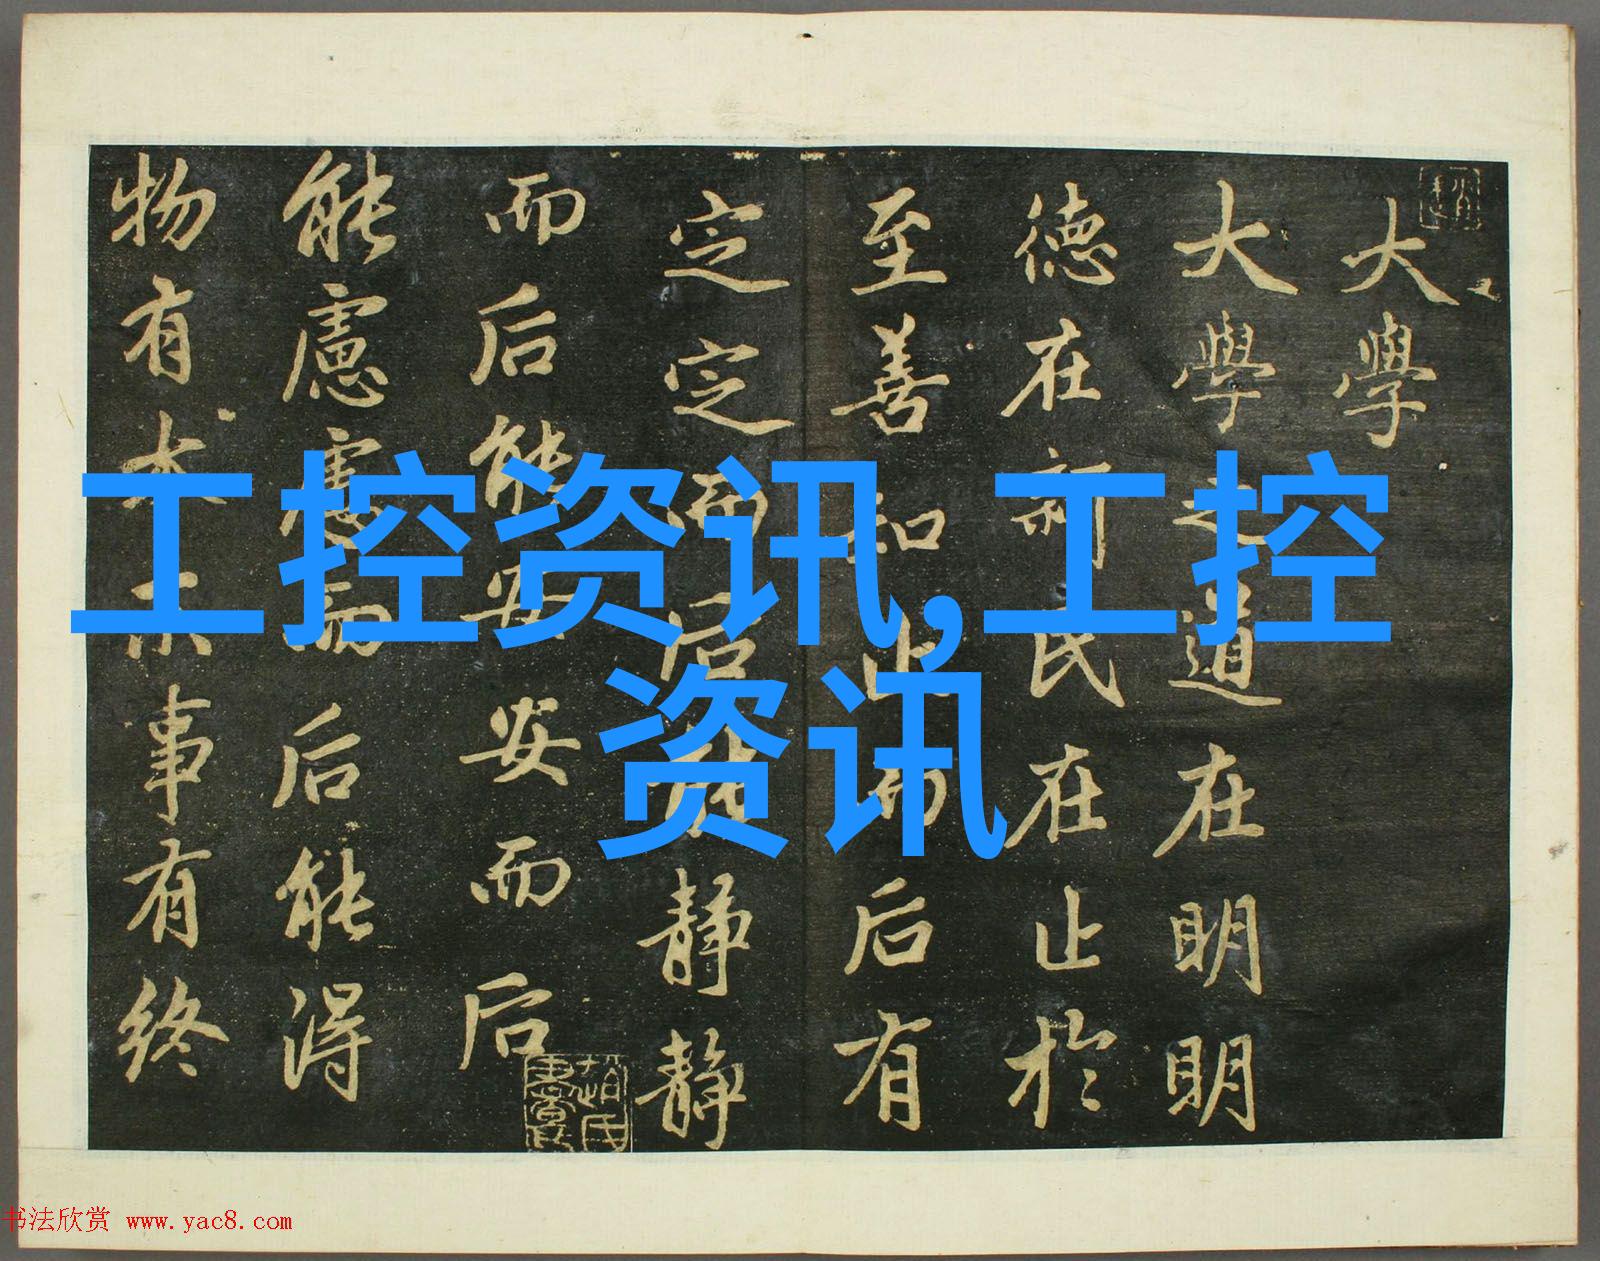 工控资讯,工控
资讯
大學
大學之道在明明
德在新民在止於
至善知止而后有
定定而后能静静
而后能安安而后
能慮慮而后能得
物有本末事有終
书法欣赏 www.yac8.com